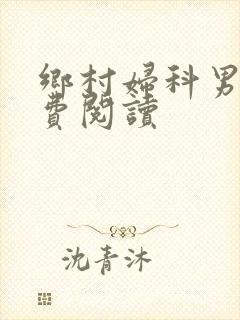 鄉村婦科男
費閱讀
沈青沐